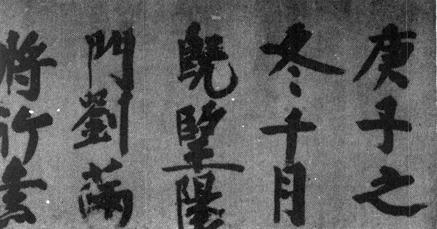 庚子之
冬十月
既望陽
門劉滿
將